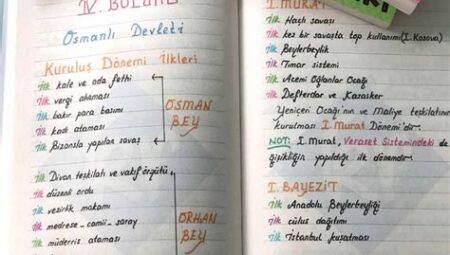 IV. BÖLÜM
Osmanlı Devleti
Kuruluş Dönemi İlkleri
ilk kale ve ada fethi
ilk vergi alınması
ilk bakır para basımı
ilk kadı ataması
ilk Bizansla yapılan savaş
OSMAN
BEY
ilk Divan teşkilatı ve vakıf örgütü
ilk düzenli ordu
ilk vezirlik makamı
ilk medrese-camii-saray
ilk müderris ataması
ORHAN
BEY
I. MURAT
ilk Haçlı savaşı
ilk kez bir savaşta top kullanımı (I. Kosova)
ilk Beylerbeylik
ilk Tımar sistemi
ilk Acemi Oğlanlar Ocağı
ilk Defterdar ve Kazasker
Yeniçeri Ocağı'nın ve Maliye teşkilatının
kurulması I. Murat Dönemi'dir.
NOT: I. Murat, Veraset Sistemindeki
değişikliğin yapıldığı ilk dönemdir.
I. BAYEZİT
ilk Anadolu Beylerbeyliği
ilk cülus dağıtımı
ilk İstanbul kuşatması